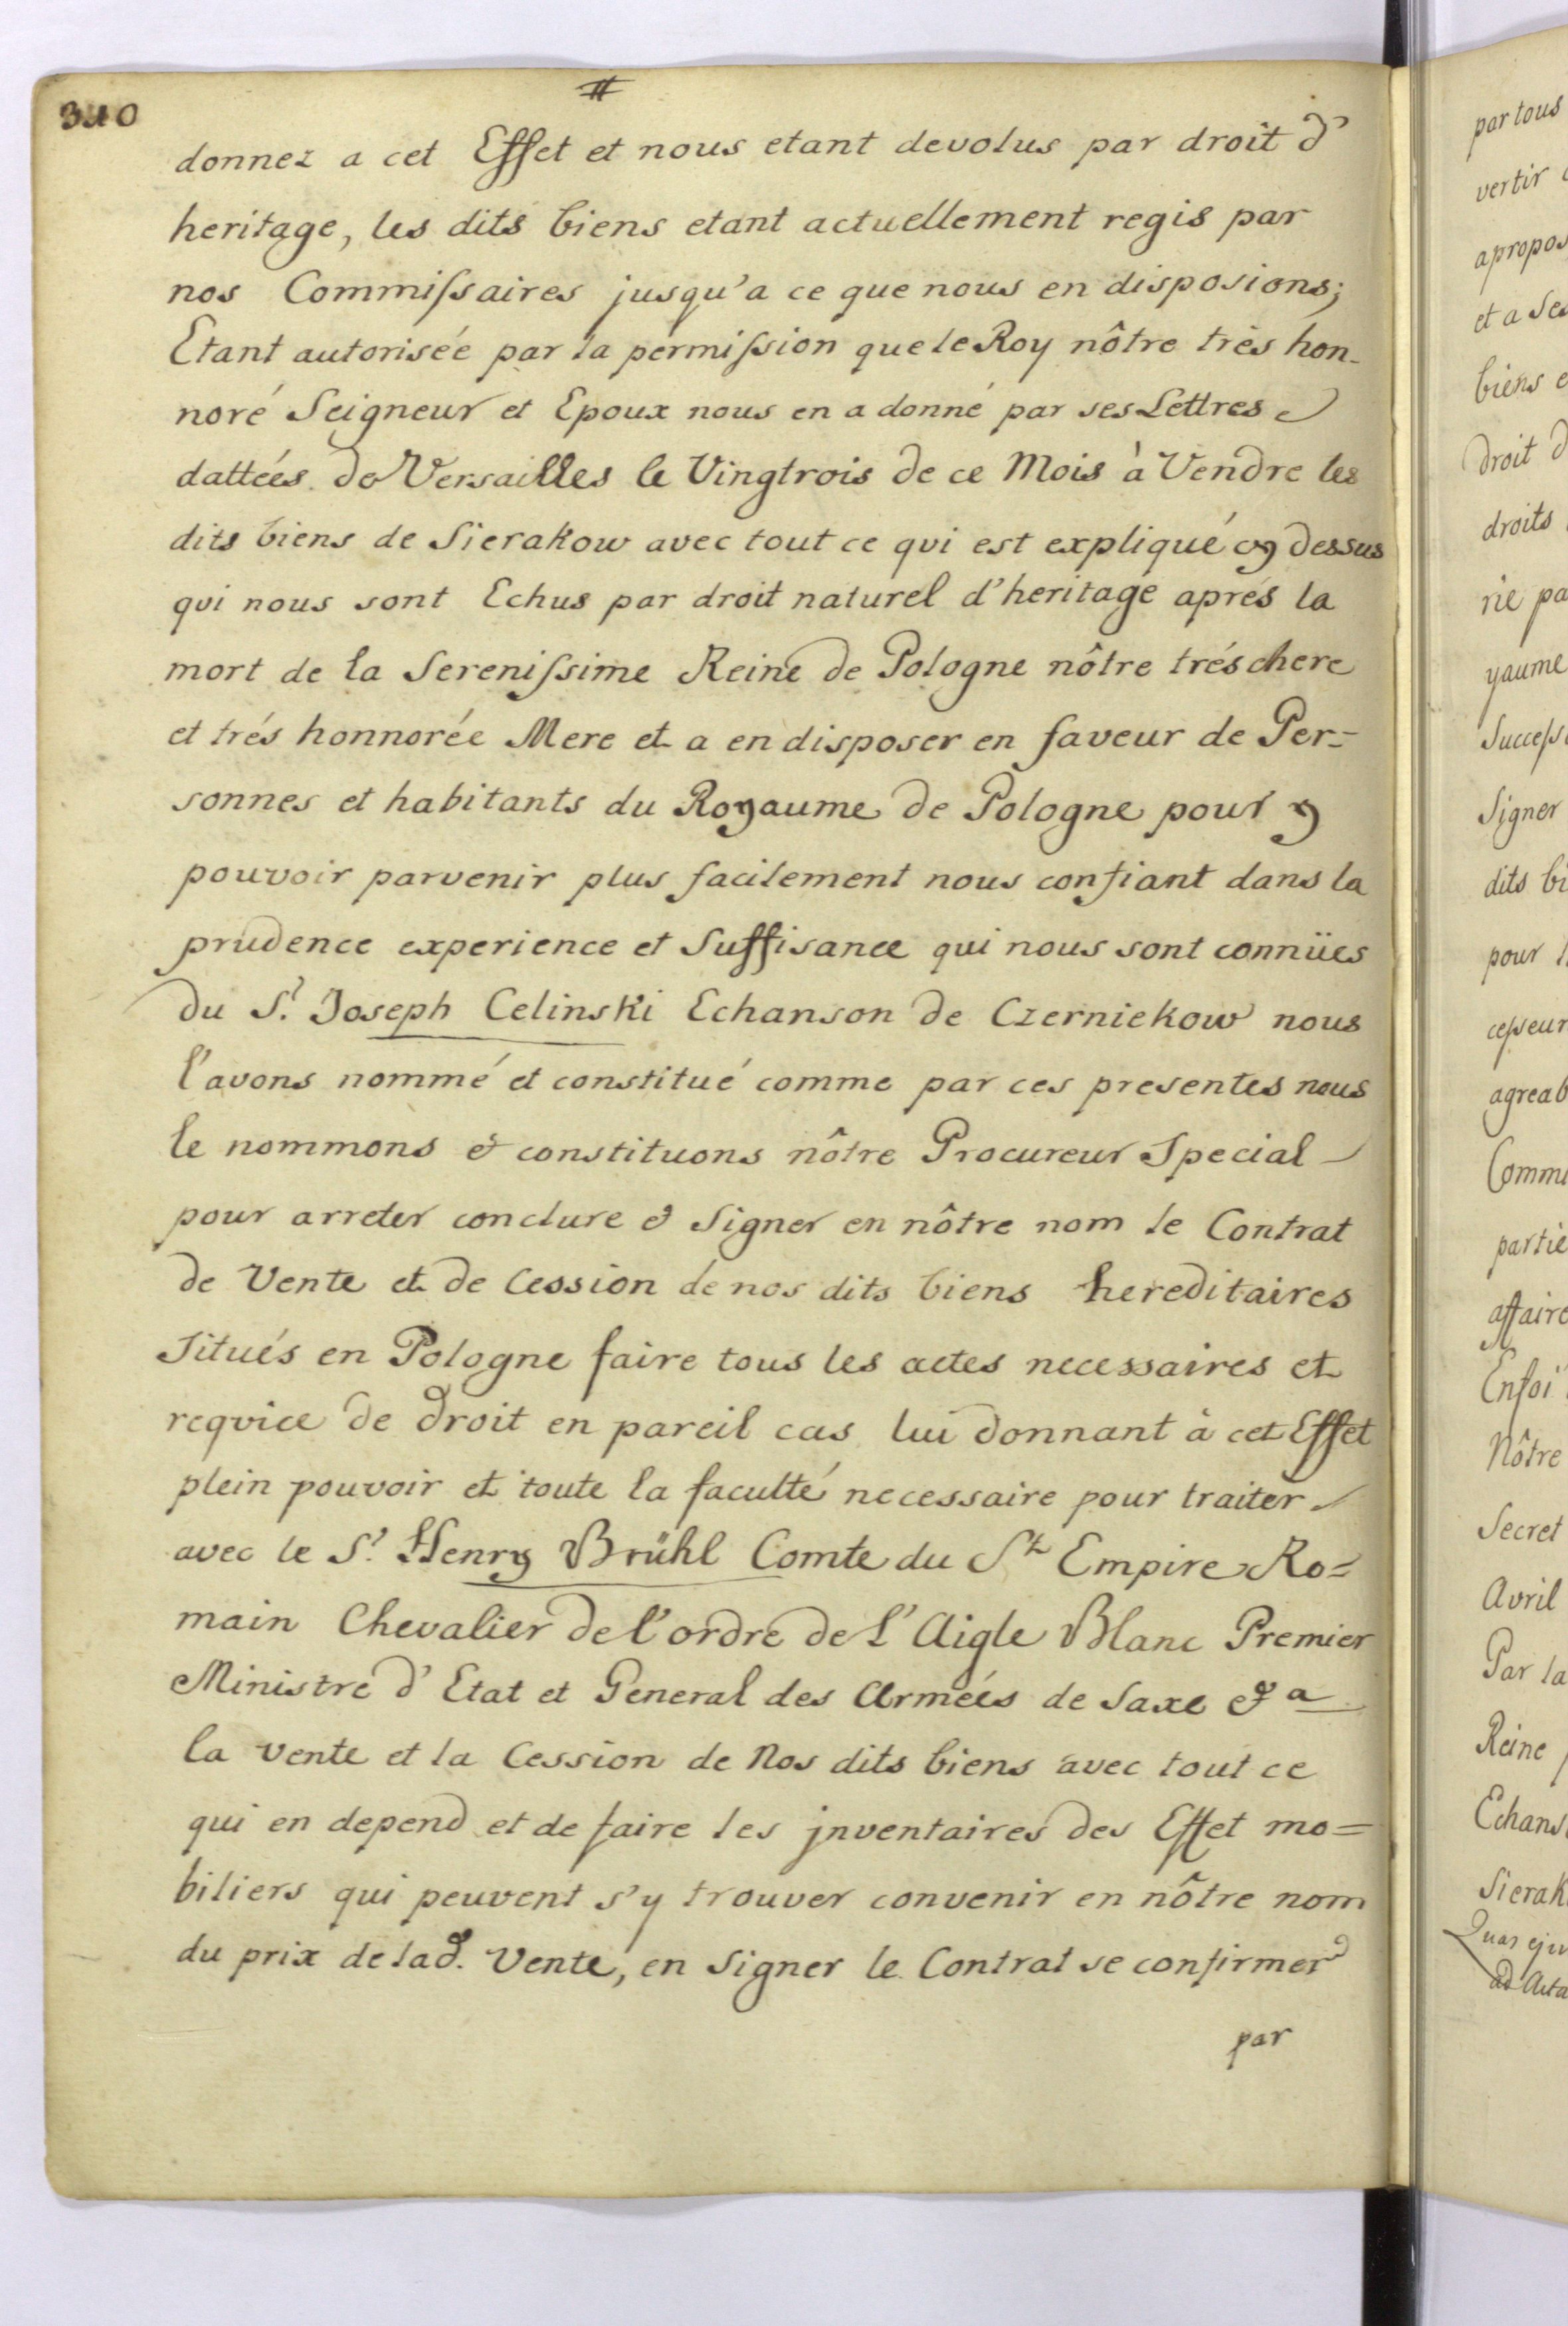 340
#
donnez a cet Effet et nous etant devolus par droit d'
heritage, les dits biens etant actuellement regis par
nos Commiſsaires jusqu'a ce que nous en disposions;
Etant autorisée par la permiſsion que le Roy nôtre très hon-
noré Seigneur et Epoux nous en a donné par ses Lettres
dattées de Versailles le Vingtrois de ce Mois à Vendre les
dits biens de Sierakow avec tout ce qui est expliqué cy dessus
qui nous sont Echus par droit naturel d'heritage aprés la
mort de la Sereniſsime Reine de Pologne nôtre trés chere
et trés honnorée Mere et a en disposer en faveur de Per=
sonnes et habitants du Royaume de Pologne pour y
pouvoir parvenir plus facilement nous confiant dans la
prudence experience et Suffisance qui nous sont connües
du Sr. Joseph Celinski Echanson de Czerniekow nous
l'avons nommé et constitué comme par ces presentes nous
le nommons & constituons nôtre Procureur Special
pour arreter conclure & Signer en nôtre nom le Contrat
de Vente et de Cession de nos dits biens hereditaires
Situés en Pologne faire tous les actes necessaires et
requice de droit en pareil cas lui donnant à cet Effet
plein pouvoir et toute la faculté necessaire pour traiter
avec le Sr. Henry Brühl Comte du St Empire Ro=
main Chevalier de l'ordre de L'Aigle Blanc Premier
Ministre d'Etat et General des Armées de Saxe & a
la vente et la Cession de Nos dits biens avec tout ce
qui en depend et de faire les jnventaires des Effet mo=
biliers qui peuvent s'y trouver convenir en nôtre nom
du prix de lad. Vente, en Signer le Contrat se confirmer
par
par tous
vertir
apropos
et a Ses
biens e
droit d
droits
rie pa
yaume
Succeſs
Signer
dits bi
pour
ceſseur
agreab
Comm
partie
affaire
Enfoi
Nôtre
Secret
Avril
Par la
Reine
Echans
Sierak
Quas eju
ad Acta